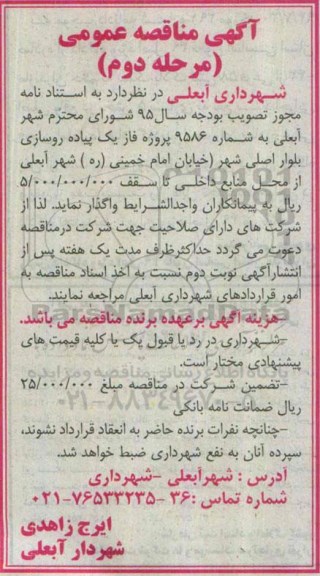 آگهی مناقصه عمومی
(مرحله دوم)
شهرداری آبعلی در نظردارد به استناد نامه
مجوز تصویب بودجه سال۹۵ شورای محترم شهر
آبعلی به شماره ۹۵۸۶ پروژه فاز یک پیاده روسازی
بلوار اصلی شهر (خیابان امام خمینی (ره ) شهر آبعلی
از محل منابع داخلی تا سقف ۵/۰۰۰/۰۰۰/۰۰۰
ریال به پیمانکاران واجدالشرایط واگذار نماید. لذا از
شرکت های دارای صلاحیت جهت شرکت درمناقصه
دعوت می گردد حداکثرظرف مدت یک هفته پس از
انتشارآگهی نوبت دوم نسبت به اخذ اسناد مناقصه به
امور قراردادهای شهرداری آبعلی مراجعه نمایند.
-هزینه آگهی برعهده برنده مناقصه می باشد.
-شهرداری در رد یا قبول یک یا کلیه قیمت های
پیشنهادی مختار است.
-تضمین شرکت در مناقصه مبلغ ۲۵/۰۰۰/۰۰۰
ریال ضمانت نامه بانکی
-چنانچه نفرات برنده حاضر به انعقاد قرارداد نشوند،
سپرده آنان به نفع شهرداری ضبط خواهد شد.
آدرس : شهرآبعلی -شهرداری
شماره تماس :۳۶ -۷۶۵۳۳۲۳۵-۰۲۱
ایرج زاهدی
شهردار آبعلی